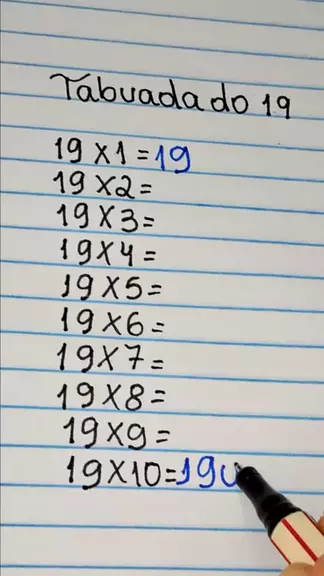 Tabuada do 19
19 X 1 = 19
19 X 2 =
19 X 3 =
19 X 4 =
19 X 5 =
19 X 6 =
19 X 7 =
19 X 8 =
19 X 9 =
19 X 10 = 190